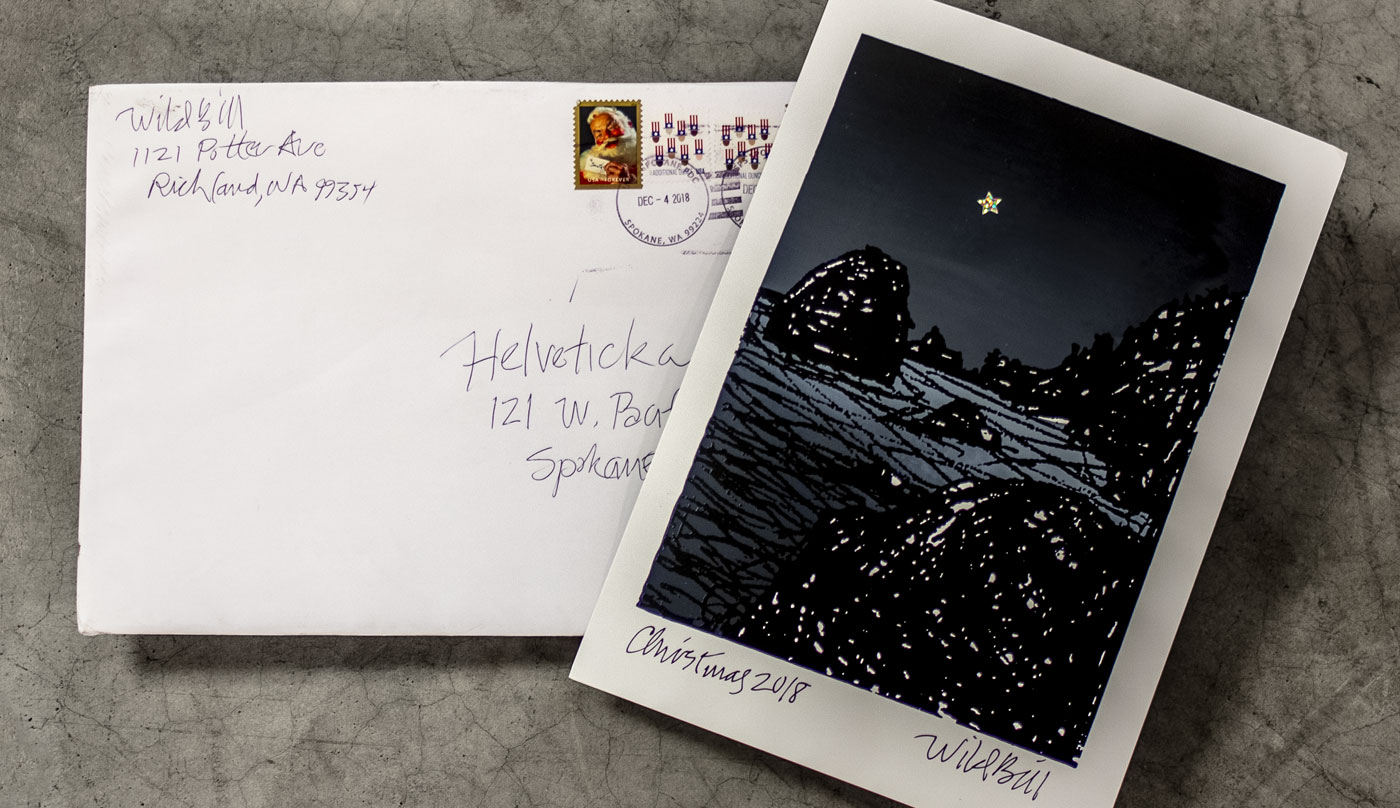 Wild Bill
1121 Potter Ave
Richland, WA 99354
USA FOREVER
ADDITIONAL OUNCE USA
DEC - 4 2018
SPOKANE, WA 99224
DEC
Helveticka
121 W.
Spokane
Christmas 2018
Wild Bill